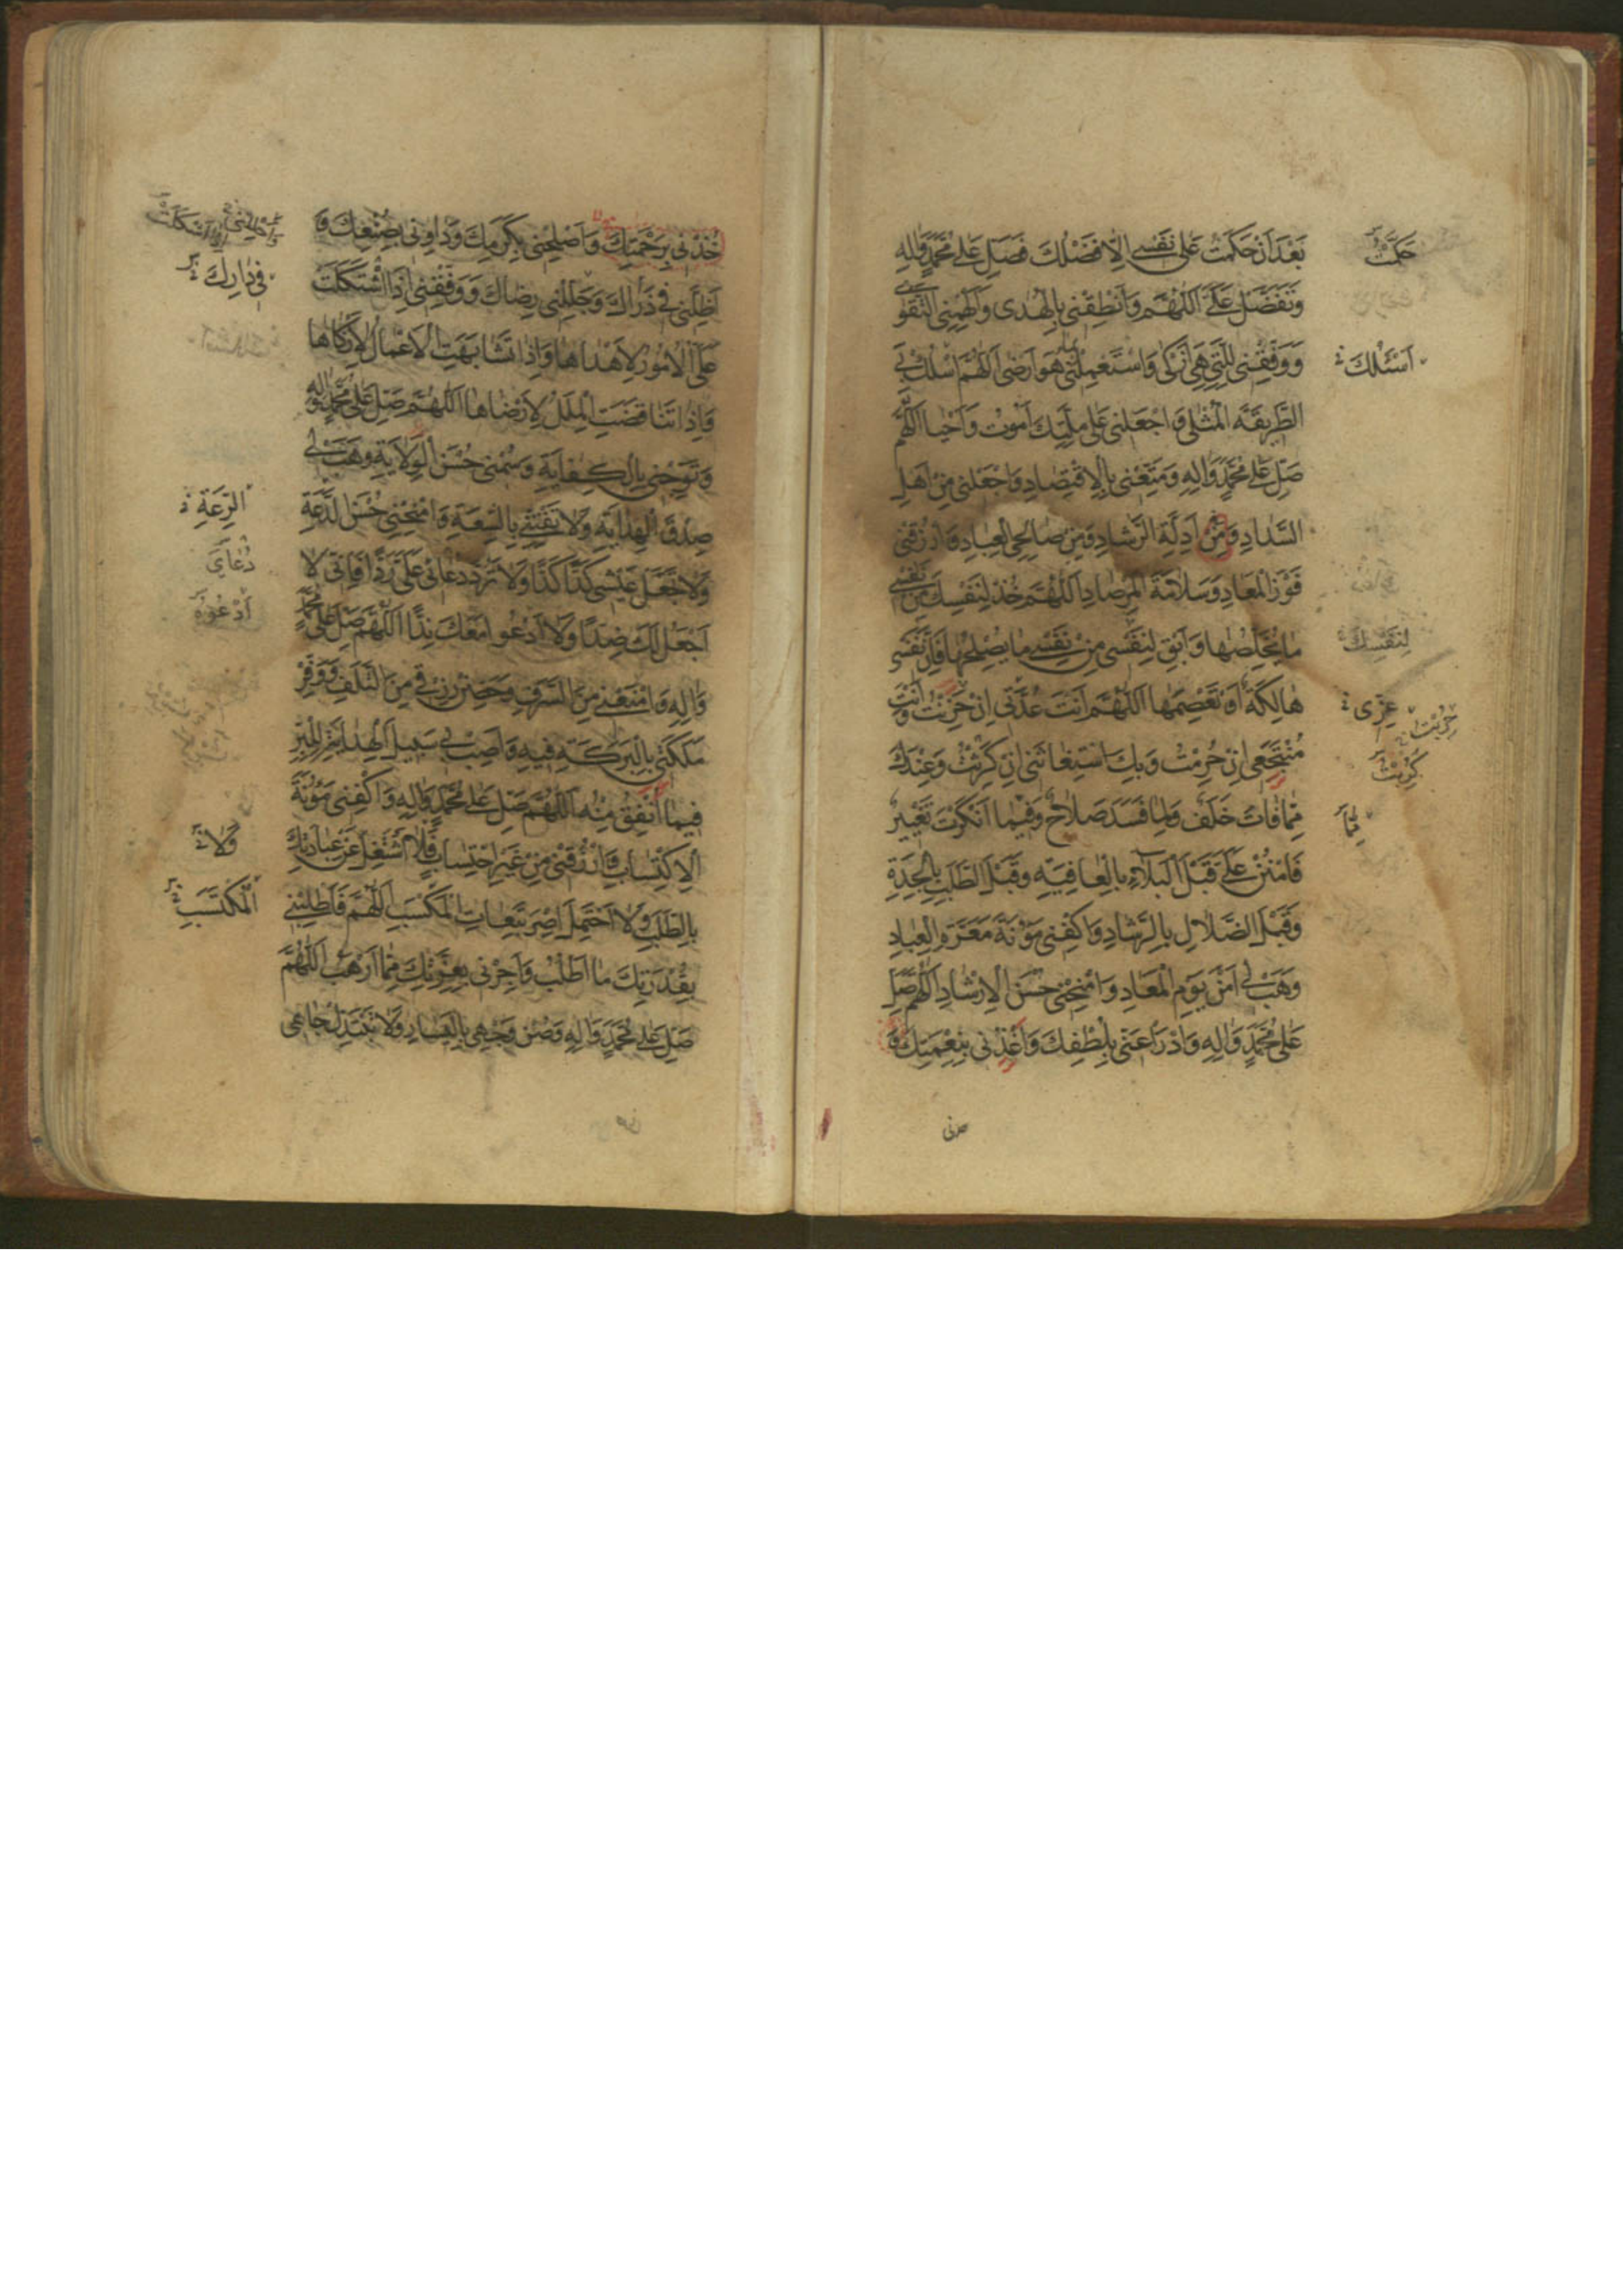 بَعْدَ اَنْ حَكَمْتُ عَلٰى نَفْسِى اِلّا فَضْلُكَ فَصَلِّ عَلٰى مُحَمَّدٍ وَاٰلِهِ
وَتَفَضَّلْ عَلَىَّ اَللّٰهُمَّ وَاَنْطِقْنى بِالْهُدٰى وَاَلْهِمْنِى التَّقْوٰى
وَوَفِّقْنى لِلَّتى هِىَ اَزْكٰى وَاسْتَعْمِلْنى بِما هُوَ اَرْضٰى اَللّٰهُمَّ اسْلُكْ بِىَ
الطَّريقَةَ الْمُثْلٰى وَاجْعَلْنى عَلٰى مِلَّتِكَ اَمُوتُ وَاَحْيٰا اَللّٰهُمَّ
صَلِّ عَلٰى مُحَمَّدٍ وَاٰلِهِ وَمَتِّعْنى بِالْاِقْتِصادِ وَاجْعَلْنى مِنْ اَهْلِ
السَّدادِ وَمِنْ اَدِلَّةِ الرَّشادِ وَمِنْ صالِحِى الْعِبادِ وَارْزُقْنى
فَوْزَ الْمَعادِ وَسَلامَةَ الْمِرْصادِ اَللّٰهُمَّ خُذْ لِنَفْسِكَ مِنْ نَفْسى
ما يُخَلِّصُها وَاَبْقِ لِنَفْسى مِنْ نَفْسى ما يُصْلِحُها فَاِنَّ نَفْسى
هالِكَةٌ اَوْ تَعْصِمَها اَللّٰهُمَّ اَنْتَ عُدَّتى اِنْ حَزِنْتُ وَاَنْتَ
مُنْتَجَعى اِنْ حُرِمْتُ وَبِكَ اسْتِغاثَتى اِنْ كَرِثْتُ وَعِنْدَكَ
مِمّا فاتَ خَلَفٌ وَلِما فَسَدَ صَلاحٌ وَفيما اَنْكَرْتَ تَغْييرٌ
فَامْنُنْ عَلَىَّ قَبْلَ الْبَلآءِ بِالْعافِيَةِ وَقَبْلَ الطَّلَبِ بِالْجِدَةِ
وَقَبْلَ الضَّلالِ بِالرَّشادِ وَاكْفِنى مَؤُنَةَ مَعَرَّةِ الْعِبادِ
وَهَبْ لى اَمْنَ يَوْمِ الْمَعادِ وَامْنَحْنى حُسْنَ الْاِرْشادِ اَللّٰهُمَّ صَلِّ
عَلٰى مُحَمَّدٍ وَاٰلِهِ وَادْرَأْ عَنّى بِلُطْفِكَ وَاغْذُنى بِنِعْمَتِكَ وَ
حَكَمْتُ
اَسْئَلُكَ
لِنَفْسِكَ
كُرِبْتُ
خُذْنى بِرَحْمَتِكَ وَاَصْلِحْنى بِكَرَمِكَ وَداوِنى بِصُنْعِكَ وَ
اَظِلَّنى فى ذَراكَ وَجَلِّلْنى رِضاكَ وَوَفِّقْنى اِذَا اشْتَكَلَتْ
عَلَىَّ الْاُمُورُ لِاَهْداها وَاِذا تَشابَهَتِ الْاَعْمالُ لِاَزْكاها
وَاِذا تَناقَضَتِ الْمِلَلُ لِاَرْضاها اَللّٰهُمَّ صَلِّ عَلٰى مُحَمَّدٍ وَاٰلِهِ
وَتَوِّجْنى بِالْكِفايَةِ وَسُمْنى حُسْنَ الْوِلايَةِ وَهَبْ لى
صِدْقَ الْهِدايَةِ وَلا تَفْتِنّى بِالسَّعَةِ وَامْنَحْنى حُسْنَ الدَّعَةِ
وَلا تَجْعَلْ عَيْشى كَدًّا كَدًّا وَلا تَرُدَّ دُعائى عَلَىَّ رَدًّا فَاِنّى لا
اَجْعَلُ لَكَ ضِدًّا وَلا اَدْعُو مَعَكَ نِدًّا اَللّٰهُمَّ صَلِّ عَلٰى مُحَمَّدٍ
وَاٰلِهِ وَامْنَعْنى مِنَ السَّرَفِ وَحَصِّنْ رِزْقى مِنَ التَّلَفِ وَوَفِّرْ
مَلَكَتى بِالْبَرَكَةِ فيهِ وَاَصِبْ بى سَبيلَ الْهِدايَةِ لِلْبِرِّ
فيما اُنْفِقُ مِنْهُ اَللّٰهُمَّ صَلِّ عَلٰى مُحَمَّدٍ وَاٰلِهِ وَاكْفِنى مَؤُنَةَ
الْاِكْتِسابِ وَارْزُقْنى مِنْ غَيْرِ احْتِسابٍ فَلا اَشْتَغِلَ عَنْ عِبادَتِكَ
بِالطَّلَبِ وَلا اَحْتَمِلَ اِصْرَ تَبِعاتِ الْمَكْسَبِ اَللّٰهُمَّ فَاَطْلِبْنى
بِقُدْرَتِكَ ما اَطْلُبُ وَاَجِرْنى بِعِزَّتِكَ مِمّا اَرْهَبُ اَللّٰهُمَّ
صَلِّ عَلٰى مُحَمَّدٍ وَاٰلِهِ وَصُنْ وَجْهى بِالْيَسارِ وَلا تَبْتَذِلْ جاهى
فى دارِكَ
الرِّعَةِ
دُعاىَ
اَدْعُوهُ
وَلا
الْمُكْتَسَبِ